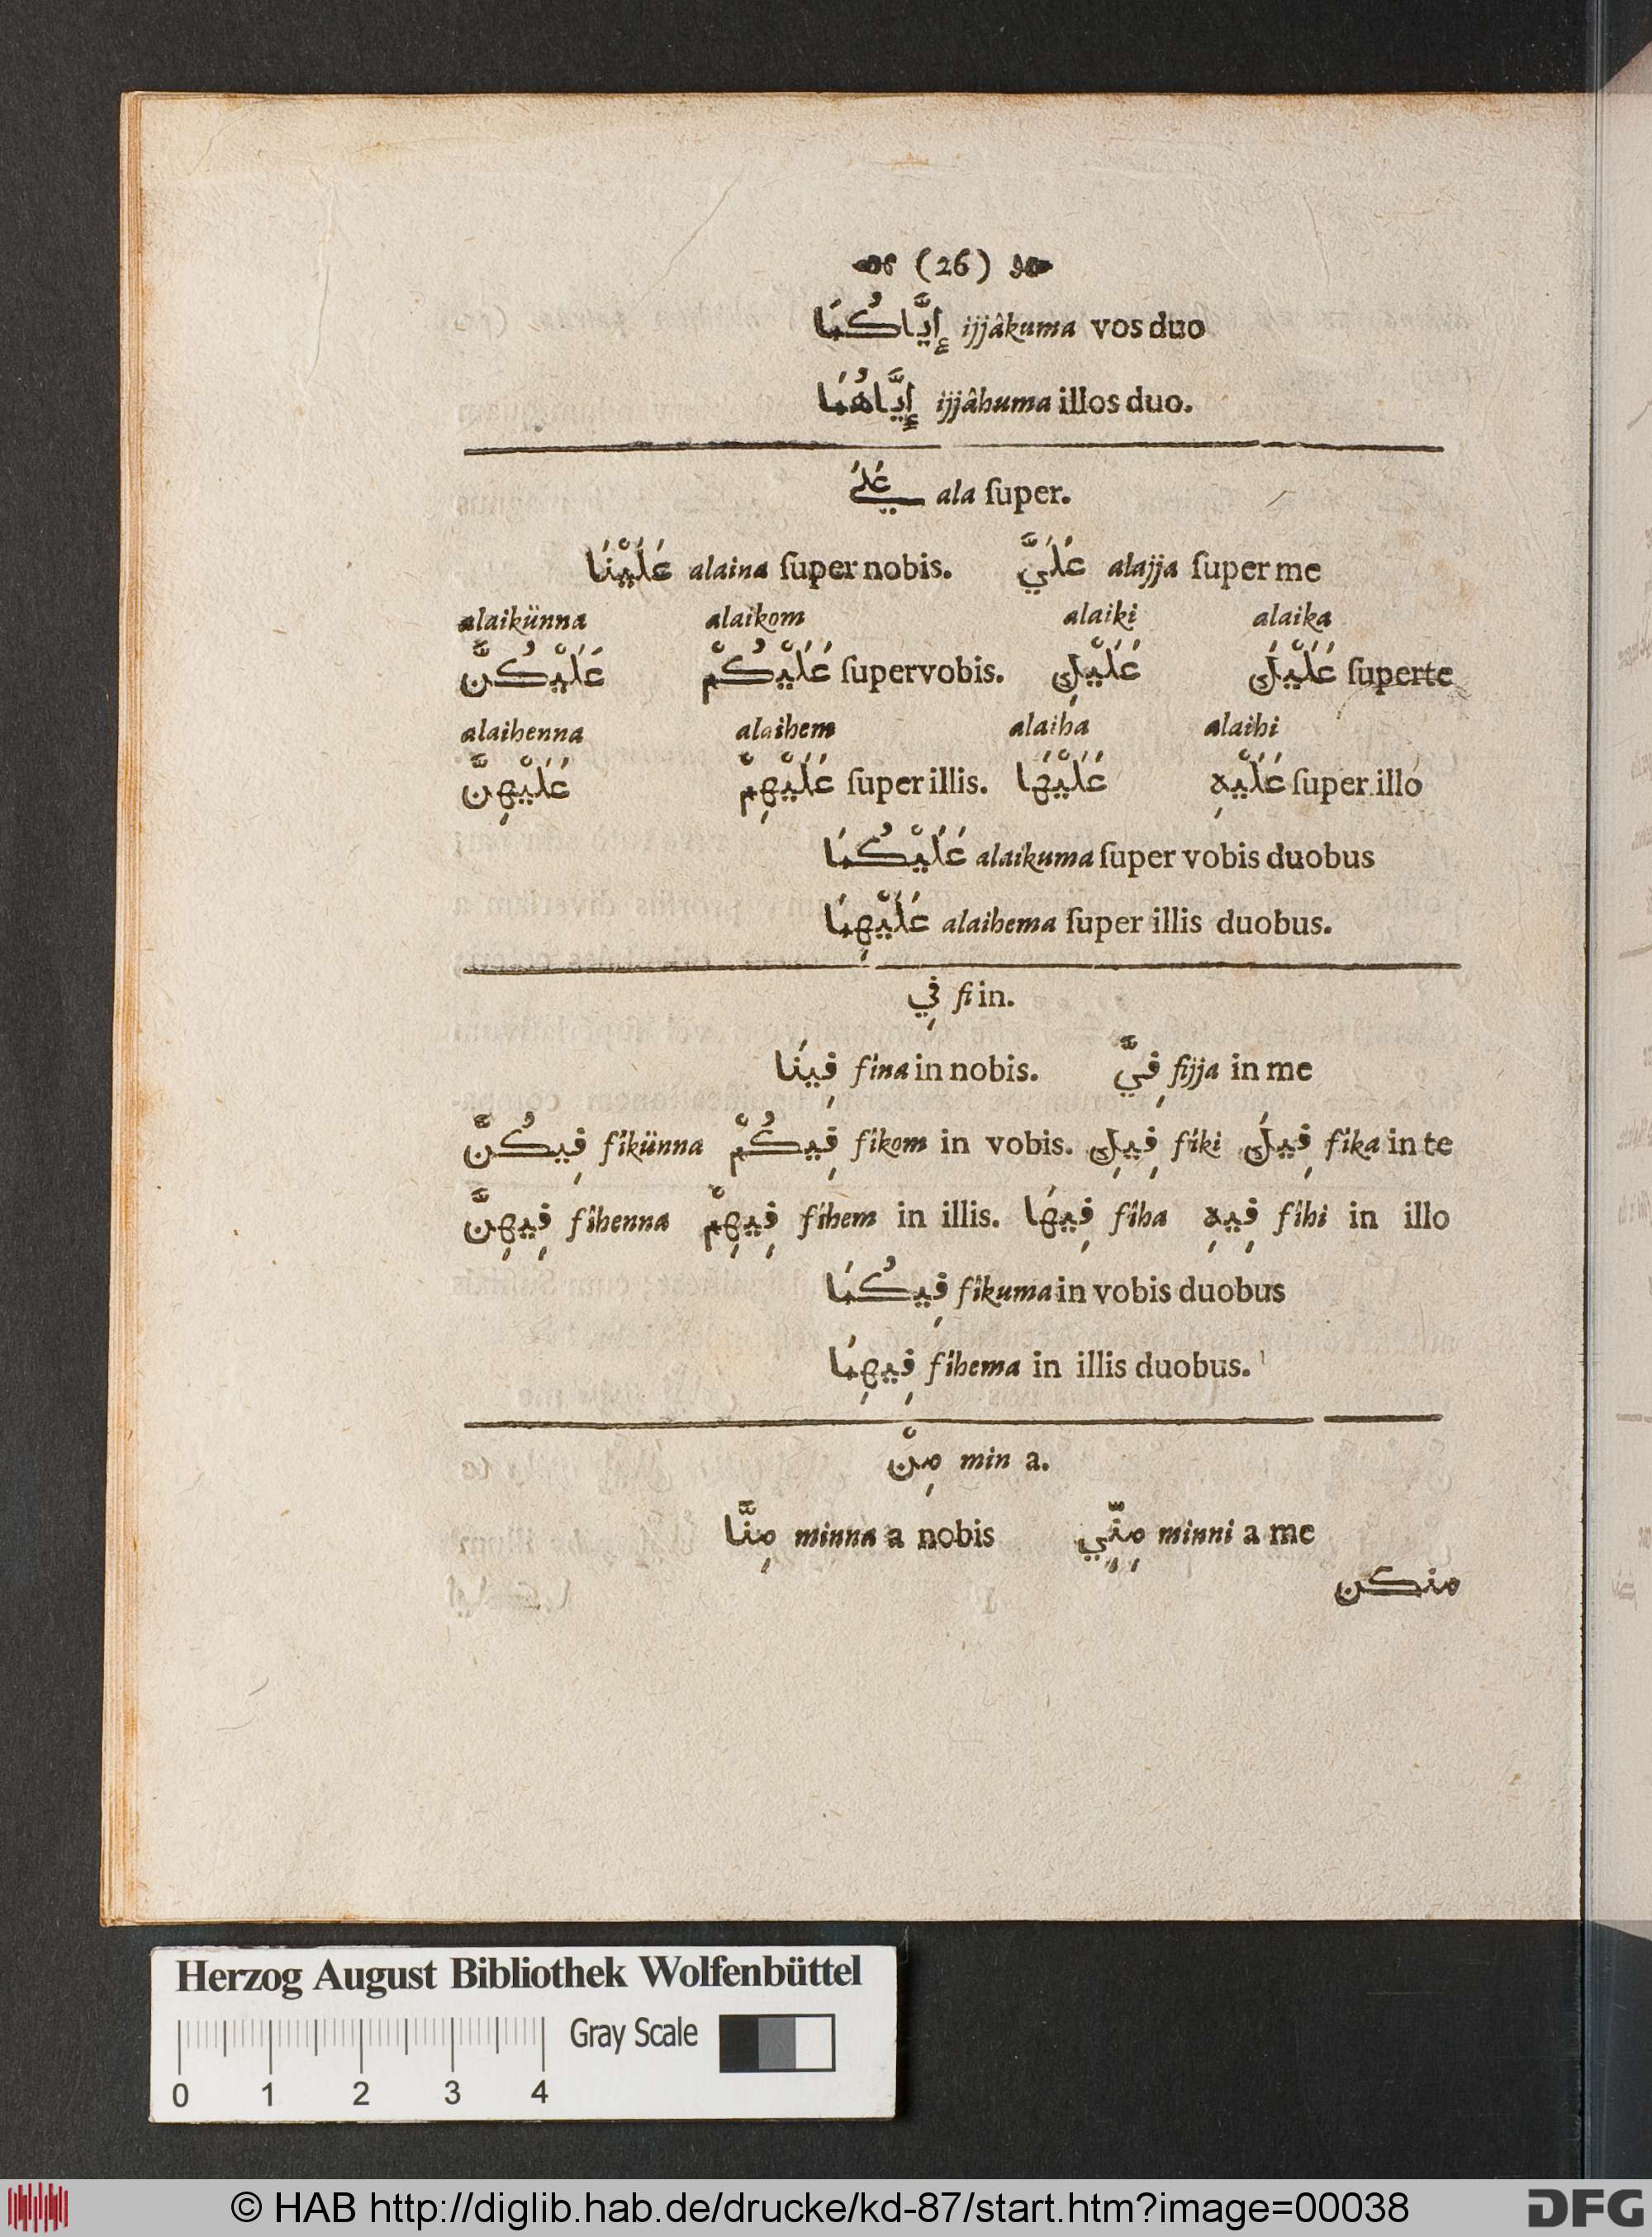 (26)
إِيَّاكُمَا ijjâkuma vos duo
إِيَّاهُمَا ijjâhuma illos duo.
عَلَي ala ſuper.
عَلَيْنَا alaina ſuper nobis. عَلَيَّ alajja ſuper me
alaikünna alaikom alaiki alaika
عَلَيْكُنَّ عَلَيْكُمْ ſuper vobis. عَلَيْكِ عَلَيْكَ ſuper te
alaihenna alaihem alaiha alaihi
عَلَيْهِنَّ عَلَيْهِمْ ſuper illis. عَلَيْهَا عَلَيْهِ ſuper illo
عَلَيْكُمَا alaikuma ſuper vobis duobus
عَلَيْهِمَا alaihema ſuper illis duobus.
فِي fi in.
فِينَا fina in nobis. فِيَّ fijja in me
فِيكُنَّ fîkünna فِيكُمْ fîkom in vobis. فِيكِ fîki فِيكَ fîka in te
فِيهِنَّ fîhenna فِيهِمْ fîhem in illis. فِيهَا fîha فِيهِ fîhi in illo
فِيكُمَا fîkuma in vobis duobus
فِيهِمَا fîhema in illis duobus.
مِنْ min a.
مِنَّا minna a nobis مِنِّي minni a me
منكن
Herzog August Bibliothek Wolfenbüttel
Gray Scale
0 1 2 3 4
© HAB http://diglib.hab.de/drucke/kd-87/start.htm?image=00038
DFG